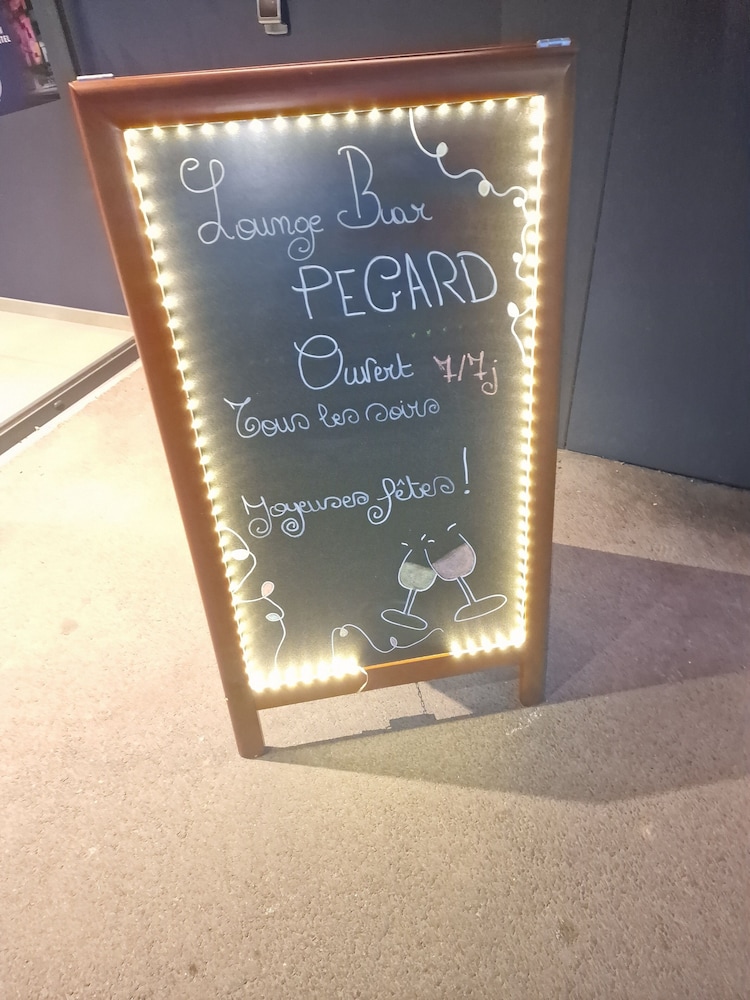 Lounge Bar
PEGARD
Ouvert 7/7j
Tous les soirs
Joyeuses fêtes !
TEL